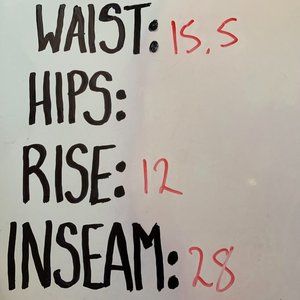 WAIST: 15.5
HIPS:
RISE: 12
INSEAM: 28